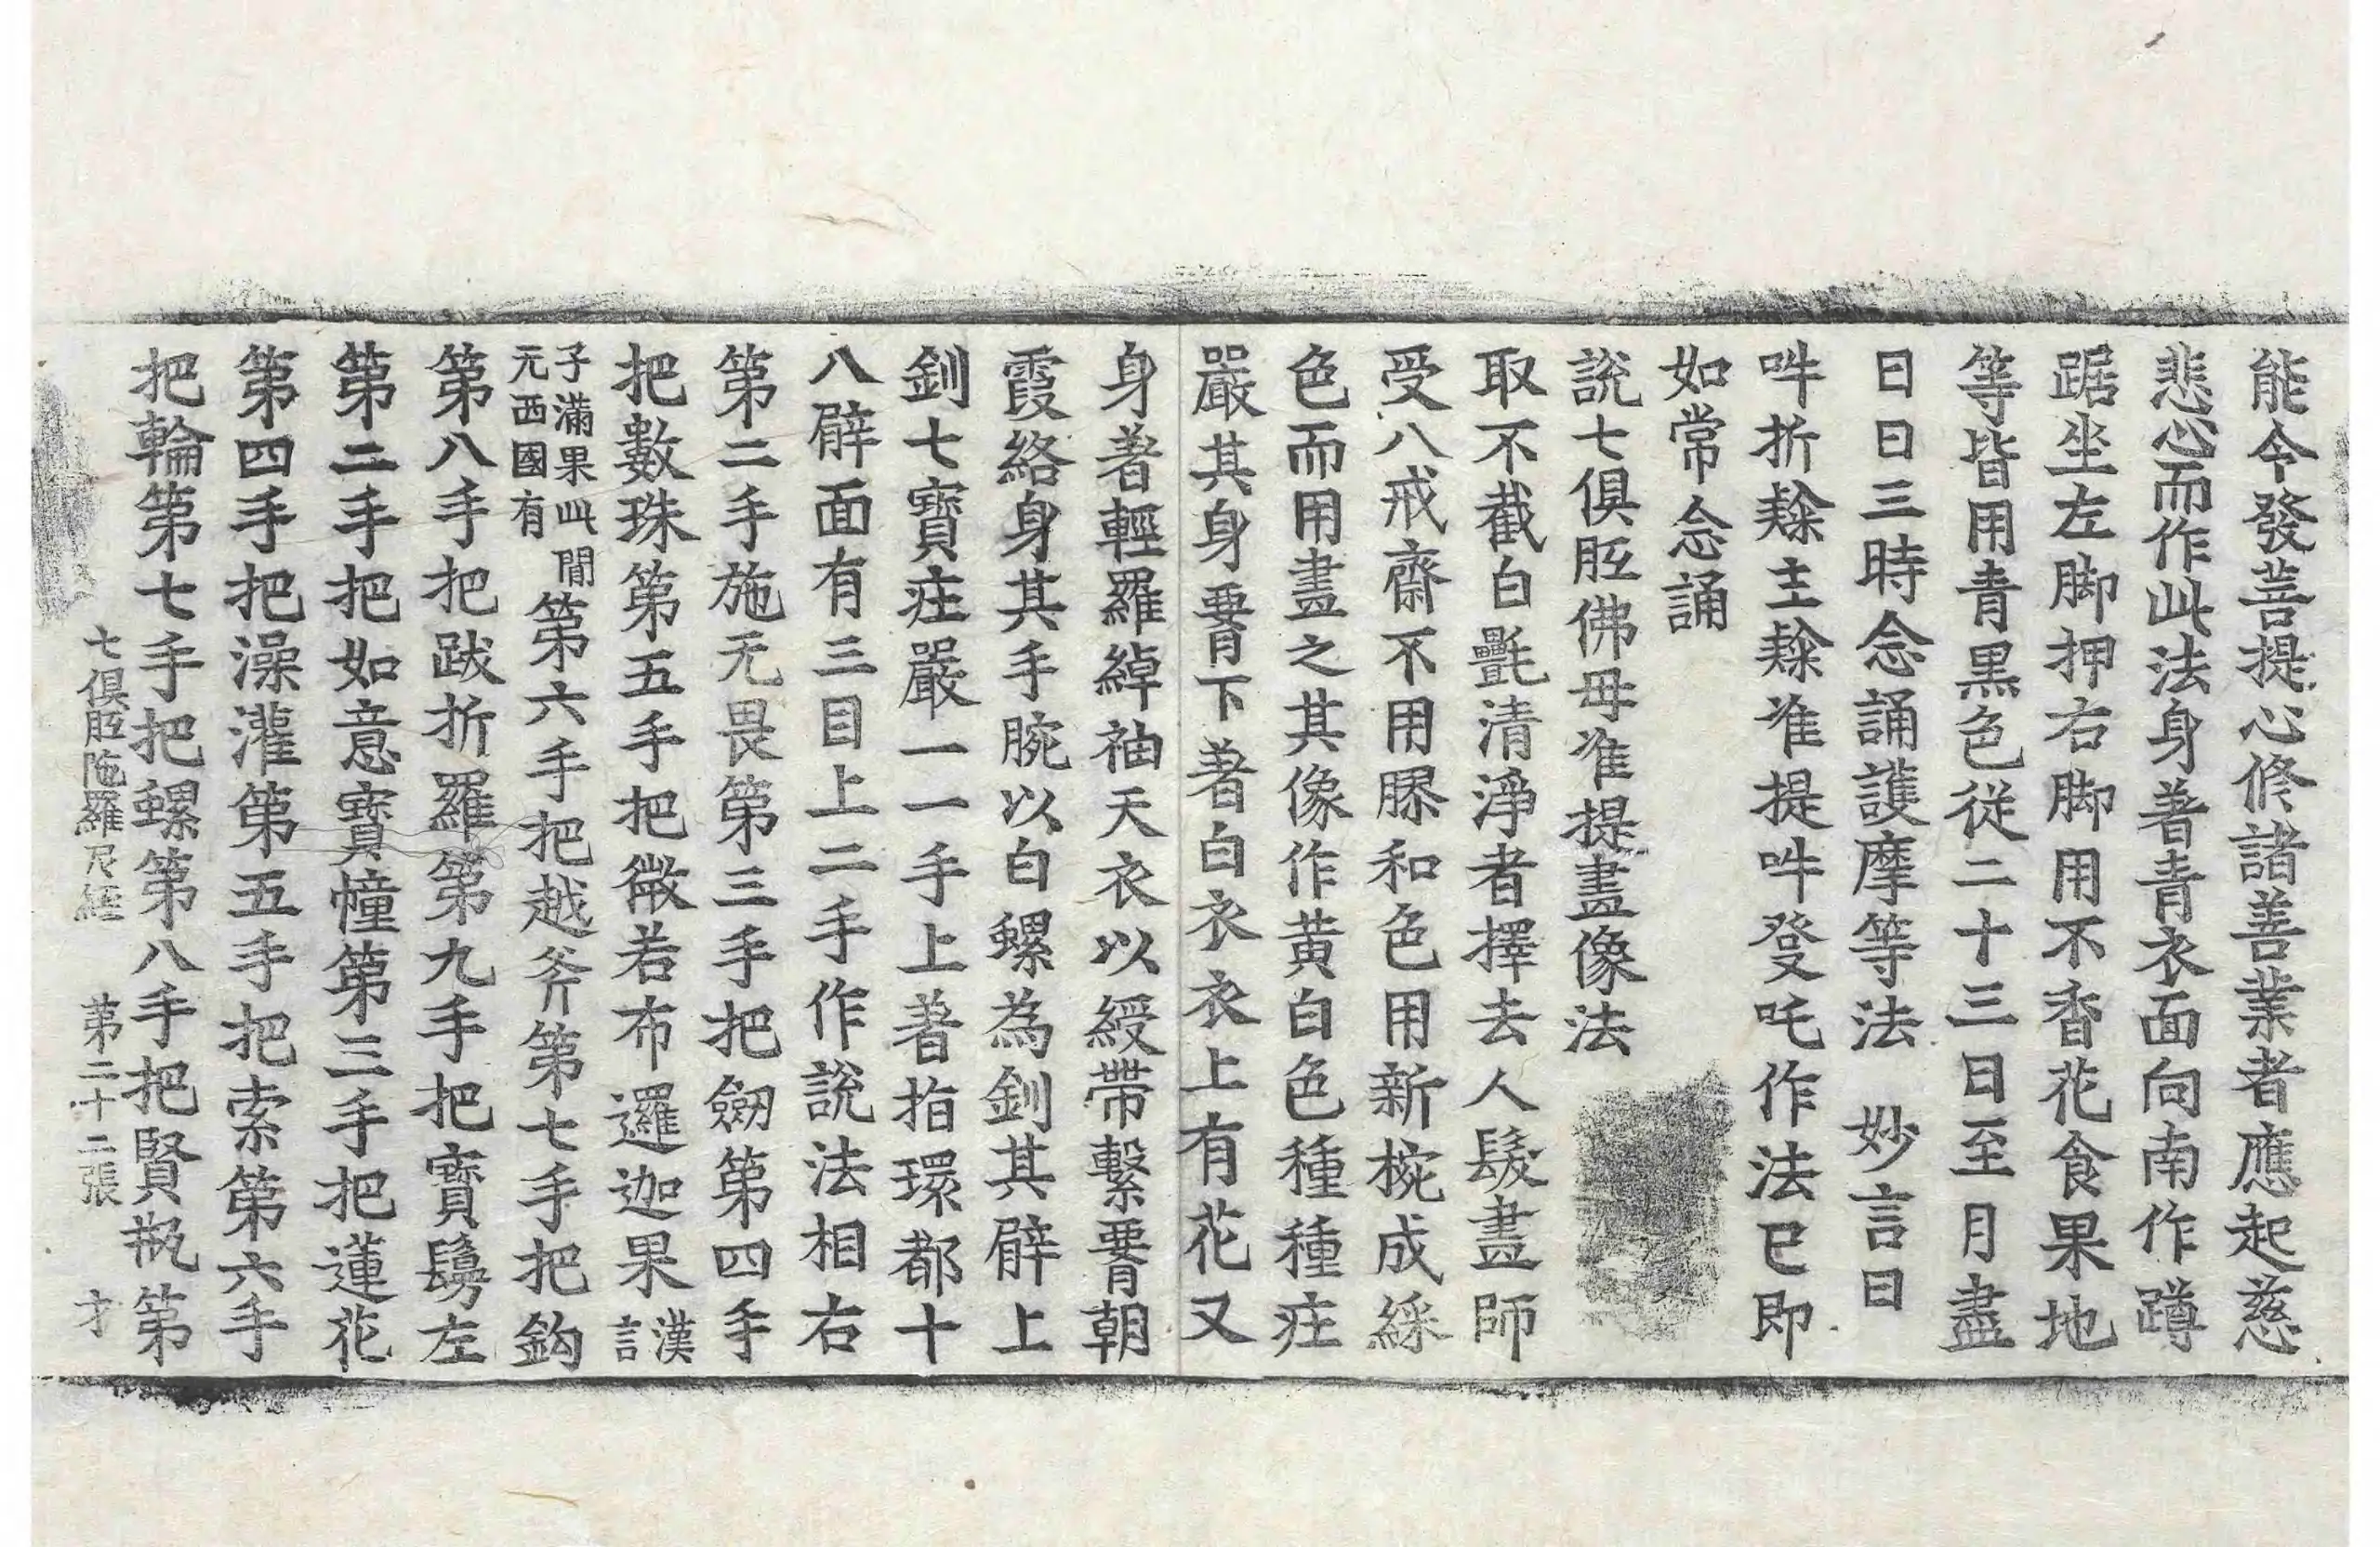 能令發菩提心修諸善業者應起慈
悲心而作此法身著青衣面向南作蹲
踞坐左脚押右脚用不香花食果地
等皆用青黑色從二十三日至月盡
日日三時念誦護摩等法 妙言曰
吽折隸主隸准提吽登吒作法已即
如常念誦
說七俱胝佛母准提畫像法
取不截白㲲清淨者擇去人髮畫師
受八戒齋不用膠和色用新椀成綵
色而用畫之其像作黃白色種種莊
嚴其身𦝫下著白衣衣上有花又
身著輕羅綽袖天衣以綬帶繫𦝫朝
霞絡身其手腕以白螺為釧其臂上
釧七寶莊嚴一一手上著指環都十
八臂面有三目上二手作說法相右
第二手施无畏第三手把劒第四手
把數珠第五手把微若布邏迦果漢言
子滿果此間
元西國有
第六手把越斧第七手把鈎
第八手把跋折羅第九手把寶鬘左
第二手把如意寶幢第三手把蓮花
第四手把澡灌第五手把索第六手
把輪第七手把螺第八手把賢瓶第
七俱胝陁羅尼經 第二十二張 才